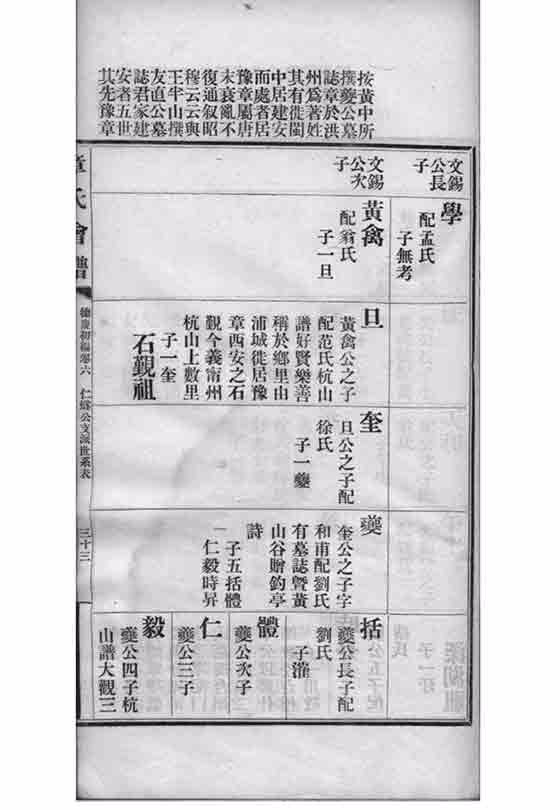 按黃中所
撰夔公墓
誌章於洪
州爲著姓
其有徙閩
中居建安
而處者居
豫章屬唐
末衰亂不
復通叙昭
穆云云與
王半山撰
友直公墓
誌君家建
安者五世
其先豫章
文錫
公長
子
學
配孟氏
子無考
文錫
公次
子
黃禽
配翁氏
子一旦
旦
黃禽公之子
配范氏杭山
譜好賢樂善
稱於鄉里由
浦城徙居豫
章西安之石
覲今義甯州
杭山上數里
子一奎
石覲祖
奎
旦公之子配
徐氏
子一夔
夔
奎公之子字
和甫配劉氏
有墓誌暨黃
山谷贈釣亭
詩
子五括體
仁毅時昇
括
夔公長子配
劉氏
子灌
體
夔公次子
仁
夔公三子
毅
夔公四子杭
山譜大觀三
章氏會譜
德慶初編卷六
公支派世系表
三十三